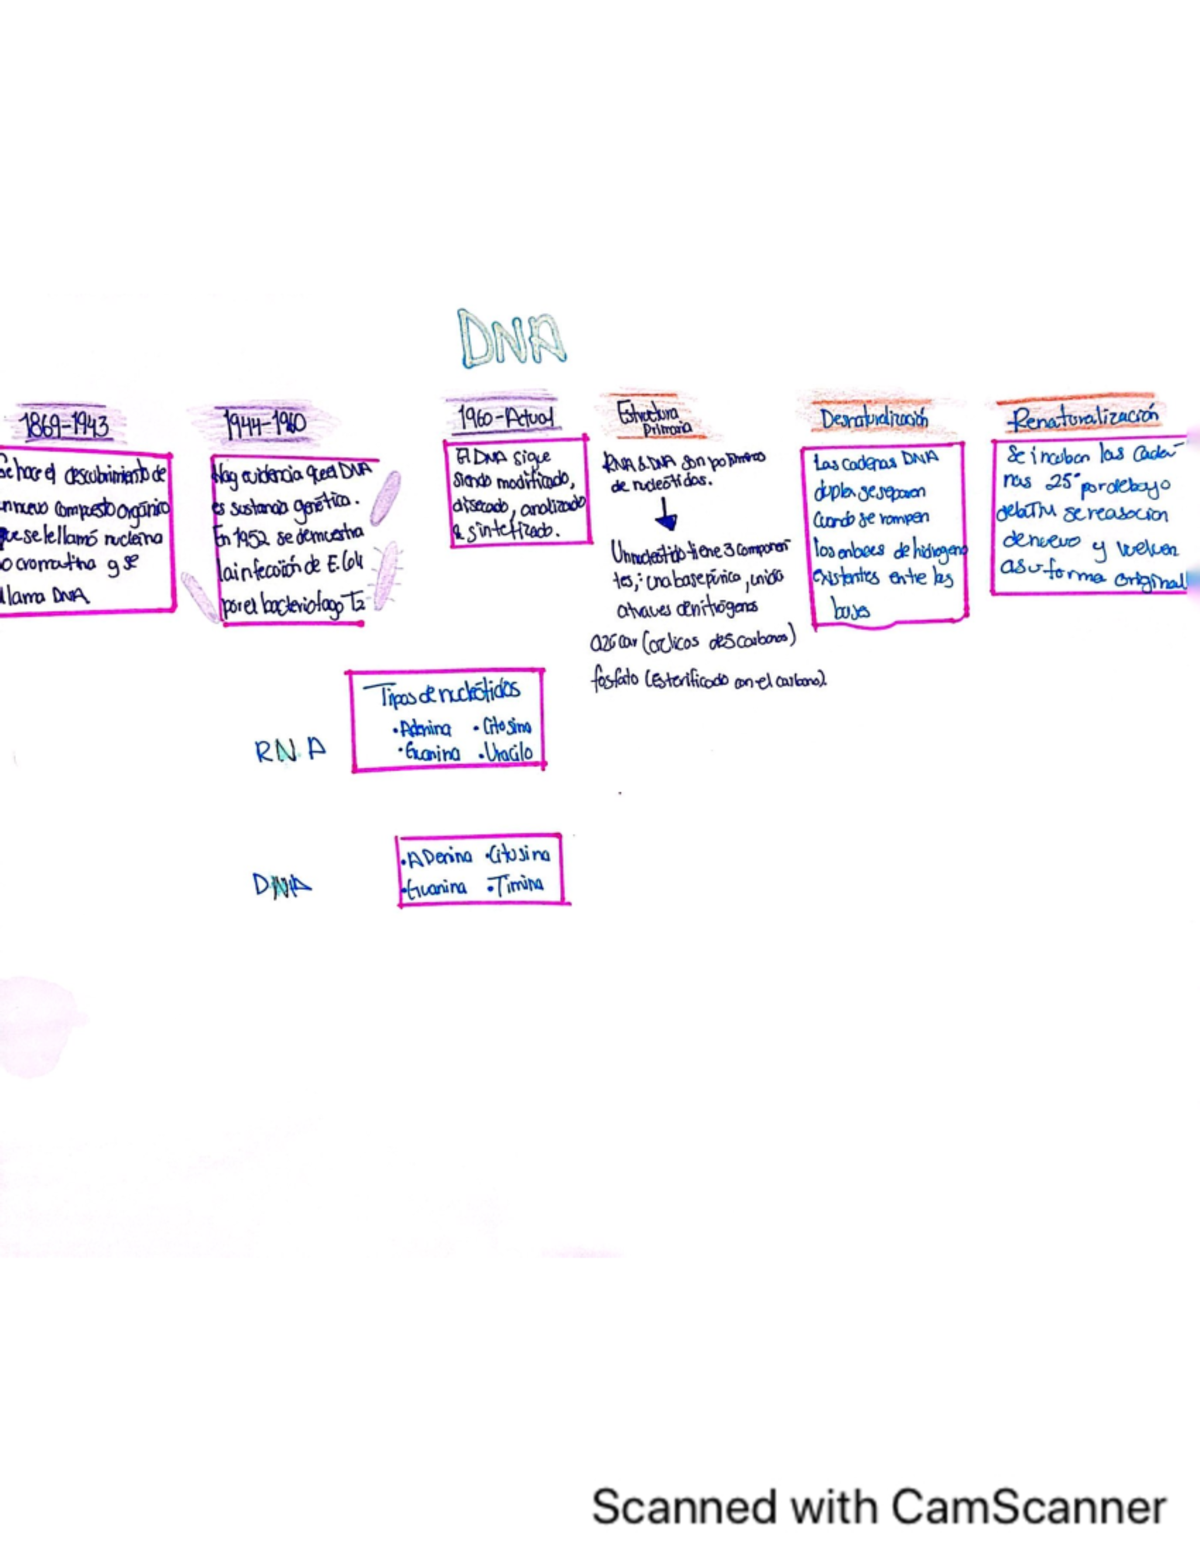 DNA
1869-1943
Se hace el descubrimiento de
n nuevo compuesto orgánico
que se le llamó nucleina
o cromatina y se
llama DNA
1944-1960
Hay evidencia q el DNA
es sustancia genética.
En 1952 se demuestra
la infección de E. Coli
por el bacteriofago T2
1960-Actual
El DNA sigue
siendo modificado,
disecado, analizado
& sintetizado.
Estructura
Primaria
RNA & DNA son polímeros
de nucleótidos.
Un nucleótido tiene 3 componen
tes; una base púrica, unida
a traves de nitrógenos
azúcar (cíclicos de 5 carbonos)
fosfato (Esterificado con el carbono).
Desnaturalización
Las cadenas DNA
dupla se separan
cuando se rompen
los enlaces de hidrogeno
existentes entre las
bases
Renaturalización
Se incuban las cade-
nas 25° por debajo
de la TM se reasocian
de nuevo y vuelven
a su forma original
Tipos de nucleótidos
•Adenina •Citosina
•Guanina •Uracilo
RNA
•ADenina •Citosina
•Guanina •Timina
DNA
Scanned with CamScanner